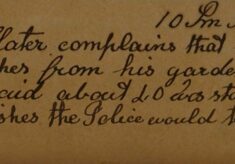 10 Pm
later complains that
hes from his garde
said about 20 was st
ishes the Police would